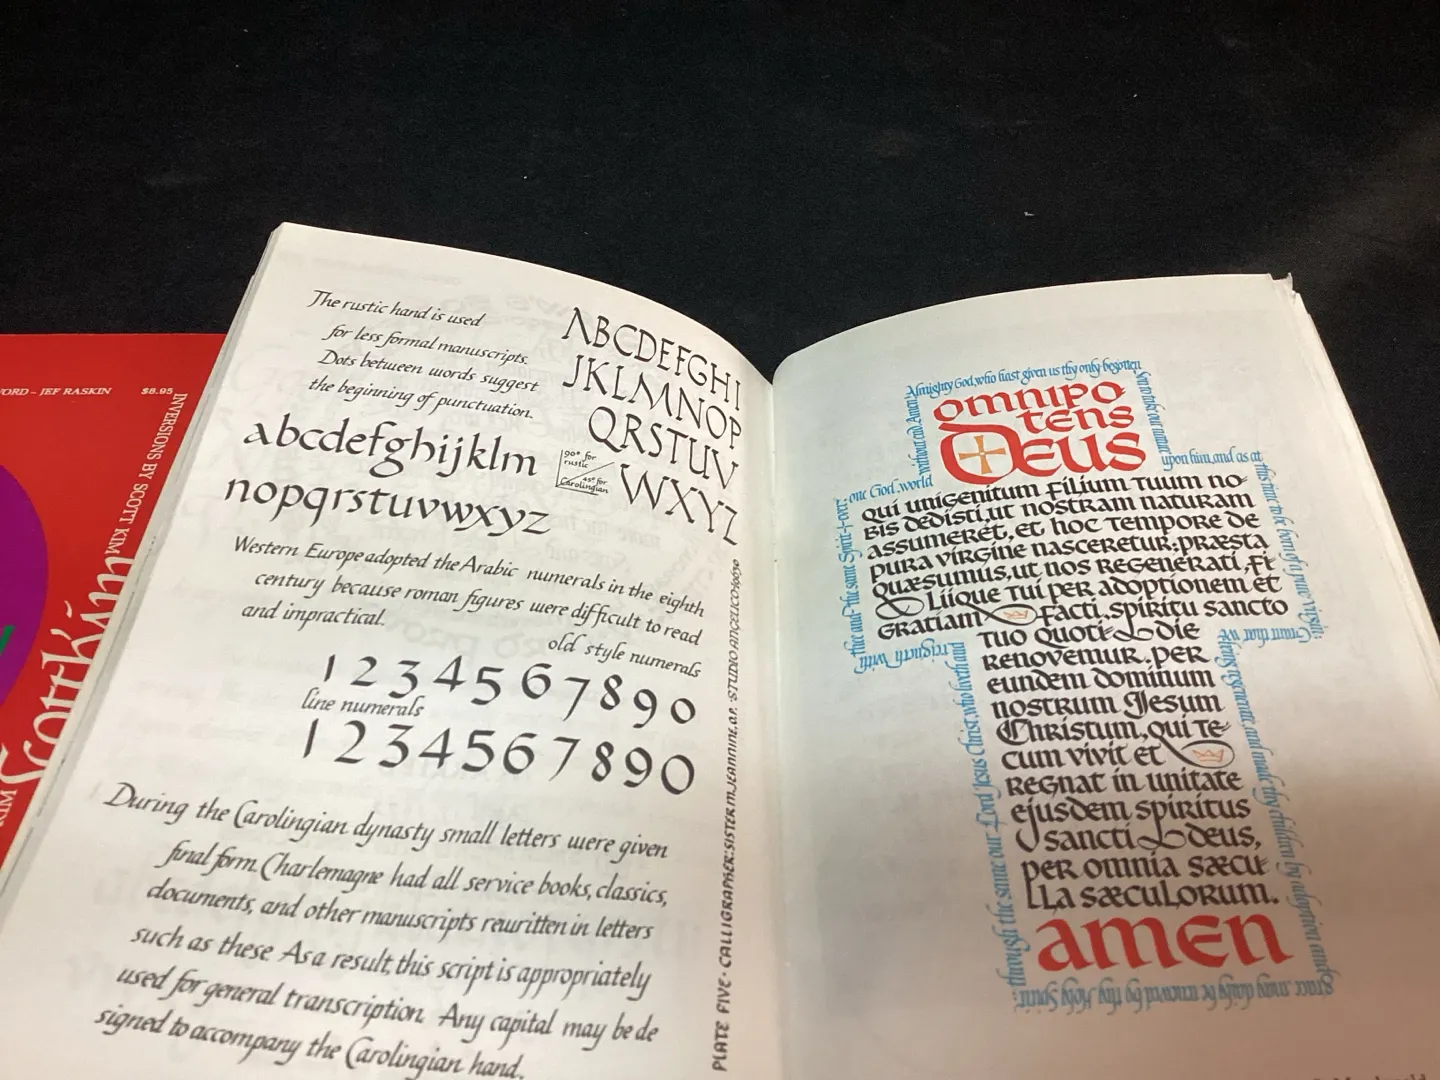 WORD – JEF RASKIN $8.95
INVERSIONS BY SCOTT KIM
Scott Kim
The rustic hand is used
for less formal manuscripts.
Dots between words suggest
the beginning of punctuation.
ABCDEFGHI
JKLMNOP
QRSTUV
WXYZ
abcdefghijklm
nopqrstuvwxyz
90° for
rustic
45° for
Carolingian
Western Europe adopted the Arabic numerals in the eighth
century because roman figures were difficult to read
and impractical.
old style numerals
1234567890
line numerals
1234567890
During the Carolingian dynasty small letters were given
final form. Charlemagne had all service books, classics,
documents, and other manuscripts rewritten in letters
such as these As a result, this script is appropriately
used for general transcription. Any capital may be de
signed to accompany the Carolingian hand.
PLATE FIVE · CALLIGRAPHER: SISTER M. JEANNINE, A.P. · STUDIO ANGELICO
omnipo
tens
Deus
qui unigenitum Filium Tuum no-
bis dedisti, ut nostram naturam
assumeret, et hoc tempore de
pura virgine nasceretur: præsta
quæsumus, ut nos regenerati, Fi
Liique tui per adoptionem et
gratiam facti, spiritu sancto
tuo quoti-die
renovemur. per
eundem dominum
nostrum Jesum
Christum, qui te-
cum vivit et
regnat in unitate
ejusdem spiritus
sancti Deus,
per omnia sæcu-
lla sæculorum.
amen
Almighty God, who hast given us thy only-begotten
Son to take our nature
upon him, and as at
this time to be born of a pure virgin:
Grant that we
being regenerate, and made thy children by adoption and
grace, may daily be renewed by thy Holy Spirit:
through the same our Lord Jesus Christ, who liveth and
reigneth with
thee and the same Spirit ever:
one God, world
without end. Amen